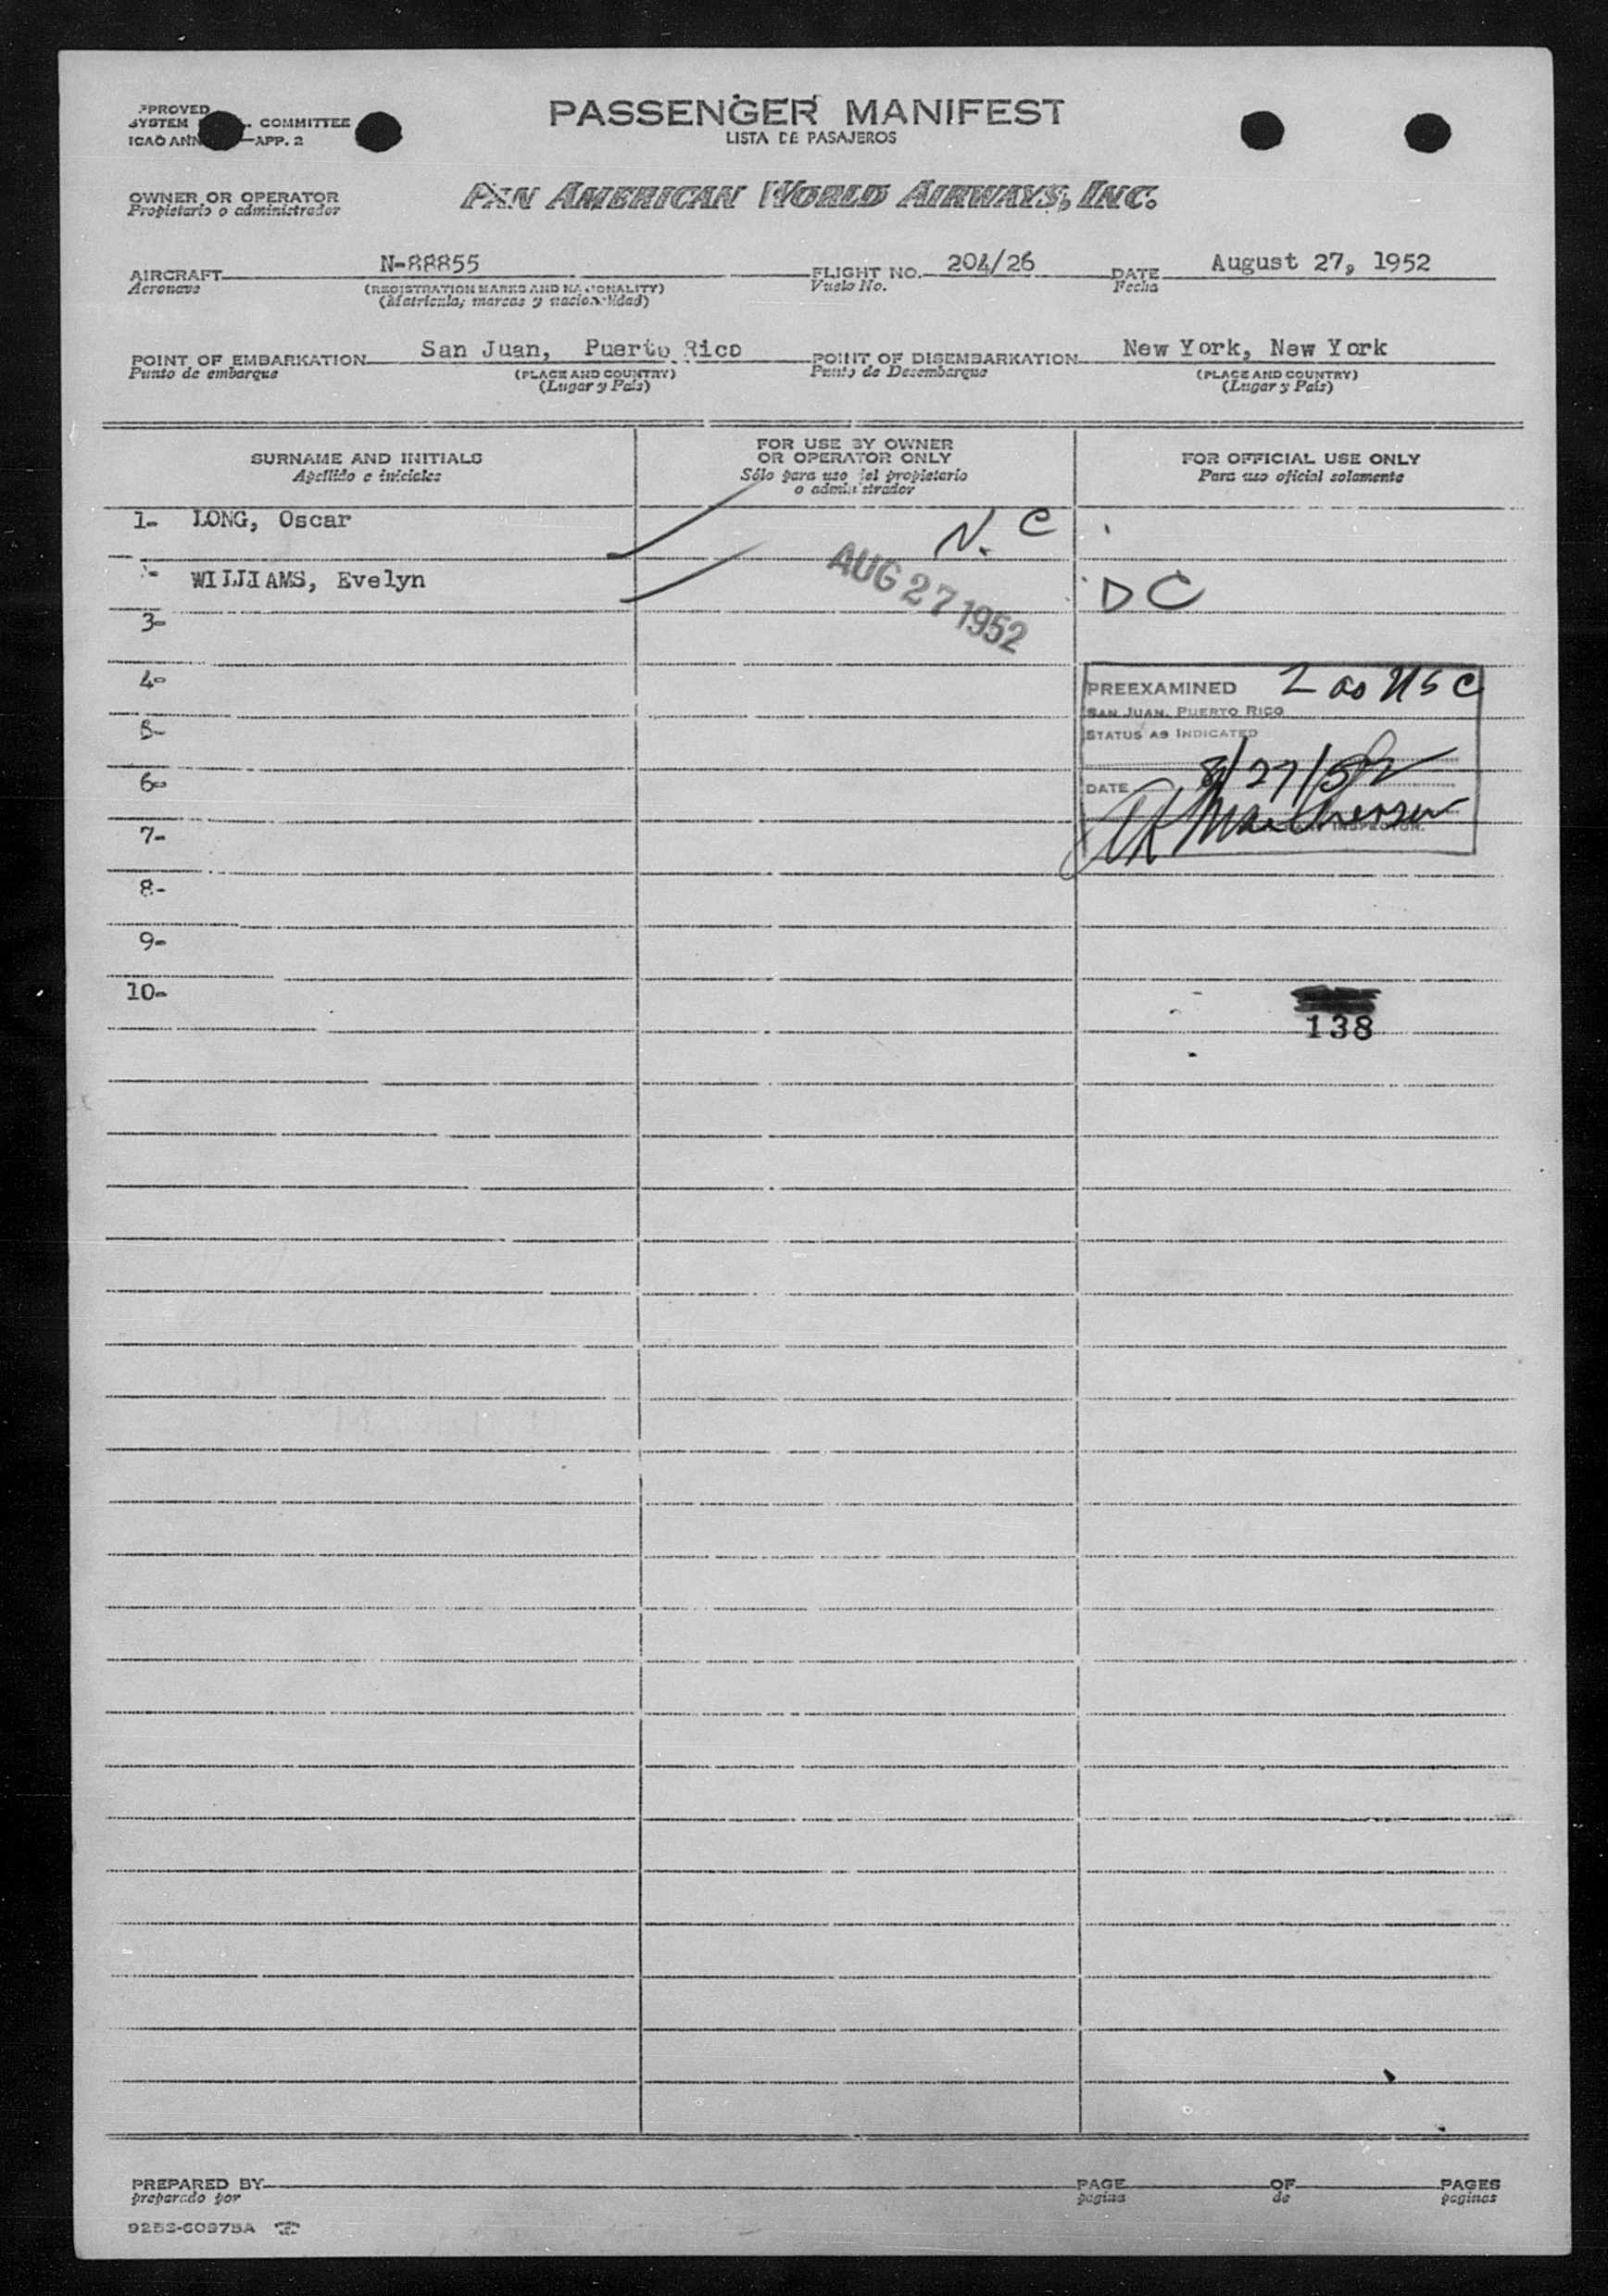 PASSENGER MANIFEST
LISTA DE PASAJEROS
SYSTEM COMMITTEE
ICAO APP. 2
OWNER OR OPERATOR
Propietario o administrador
PAN AMERICAN WORLD AIRWAYS, INC.
AIRCRAFT N-88855 FLIGHT NO. 204/26 DATE August 27, 1952
Aeronave (REGISTRATION MARKS AND NATIONALITY) Vuelo No. Fecha
(Matrícula, marcas y nacionalidad)
POINT OF EMBARKATION San Juan, Puerto Rico POINT OF DISEMBARKATION New York, New York
Punto de embarque (PLACE AND COUNTRY) Punto de Desembarque (PLACE AND COUNTRY)
(Lugar y País) (Lugar y País)
SURNAME AND INITIALS
Apellido e iniciales
FOR USE BY OWNER
OR OPERATOR ONLY
Sólo para uso del propietario
o administrador
FOR OFFICIAL USE ONLY
Para uso oficial solamente
1- LONG, Oscar N. C
WILLIAMS, Evelyn DC
AUG 27 1952
3-
4-
5-
6-
7-
8-
9-
10-
PREEXAMINED 2 as USC
SAN JUAN, PUERTO RICO
STATUS AS INDICATED
DATE 8/27/52
INSPECTOR.
138
PREPARED BY PAGE OF PAGES
preparado por pagina de paginas